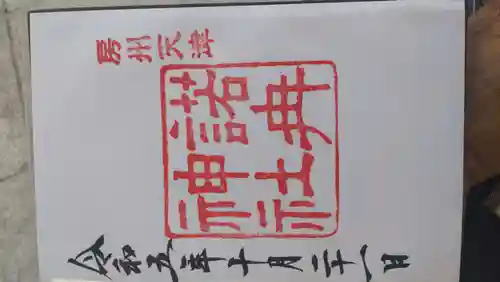 房州天津
諾冉
神社
令和五年十月二十一日